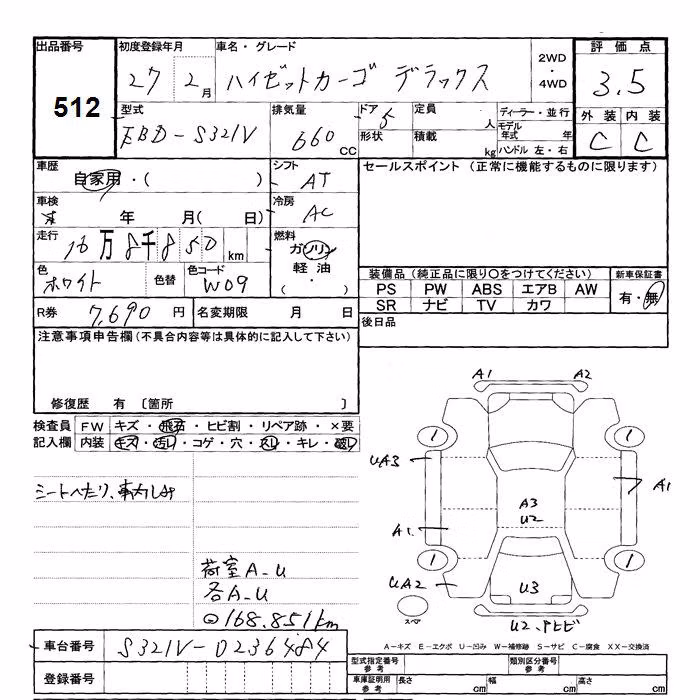 出品番号
512
初度登録年月
27 2月
車名・グレード
ハイゼットカーゴ デラックス
2WD
・
4WD
評価点
3.5
外装 内装
C C
型式
EBD-S321V
排気量
660 CC
ドア 5
形状
定員 人
積載 kg
ディーラー・並行
モデル年式 年
ハンドル 左・右
車歴
自家用・( )
シフト
AT
車検
年 月( 日)
冷房
AC
走行
16万8千850 km
燃料
ガソリン
軽油
( ・ )
色
ホワイト
色替
色コード
W09
R券 7,690円
名変期限 月 日
セールスポイント (正常に機能するものに限ります)
装備品(純正品に限り○をつけてください)
PS PW ABS エアB AW
SR ナビ TV カワ
新車保証書
有・無
後日品
注意事項申告欄(不具合内容等は具体的に記入して下さい)
修復歴 有 〔箇所 〕
検査員 FW キズ・飛石・ヒビ割・リペア跡・×要
記入欄 内装 キズ・汚レ・コゲ・穴・スレ・キレ・
シートへたり、
荷室A-U
各A-U
168.851km
A1 A2
1 1
UA3
A3
U2
A1
A1
1 1
UA2
U3
スペア
U2.アヒビ
A-キズ E-エクボ U-凹み W-補修跡 S-サビ C-腐食 XX-交換済
車台番号 S321V-0236484
登録番号
型式指定番号
参考
類別区分番号
参考
車庫証明用
参考
長さ cm 幅 cm 高さ cm